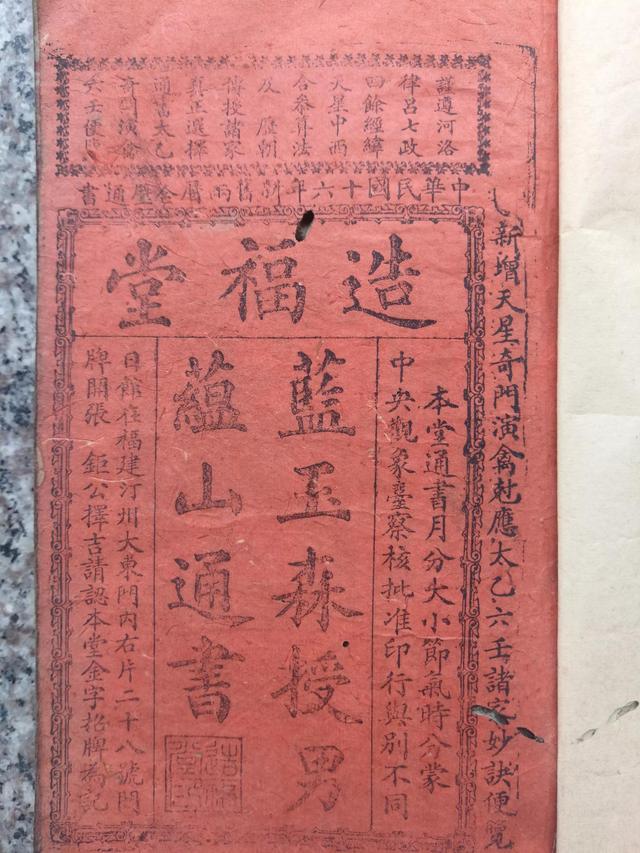 謹遵河洛
律呂七政
四餘經緯
天星中西
合參算法
及 朝
傳授諸家
真正選擇
通書太乙
奇門演禽
六壬便
中華民國十六年新舊兩曆合璧通書
新增天星奇門演禽尅應太乙六壬諸家妙訣便覽
造福堂
本堂通書月分大小節氣時分蒙
中央觀象臺察核批准印行與別不同
藍玉森授男
蘊山通書
日館在福建汀州大東門內右片二十八號門
牌開張 鉅公擇吉請認本堂金字招牌為記